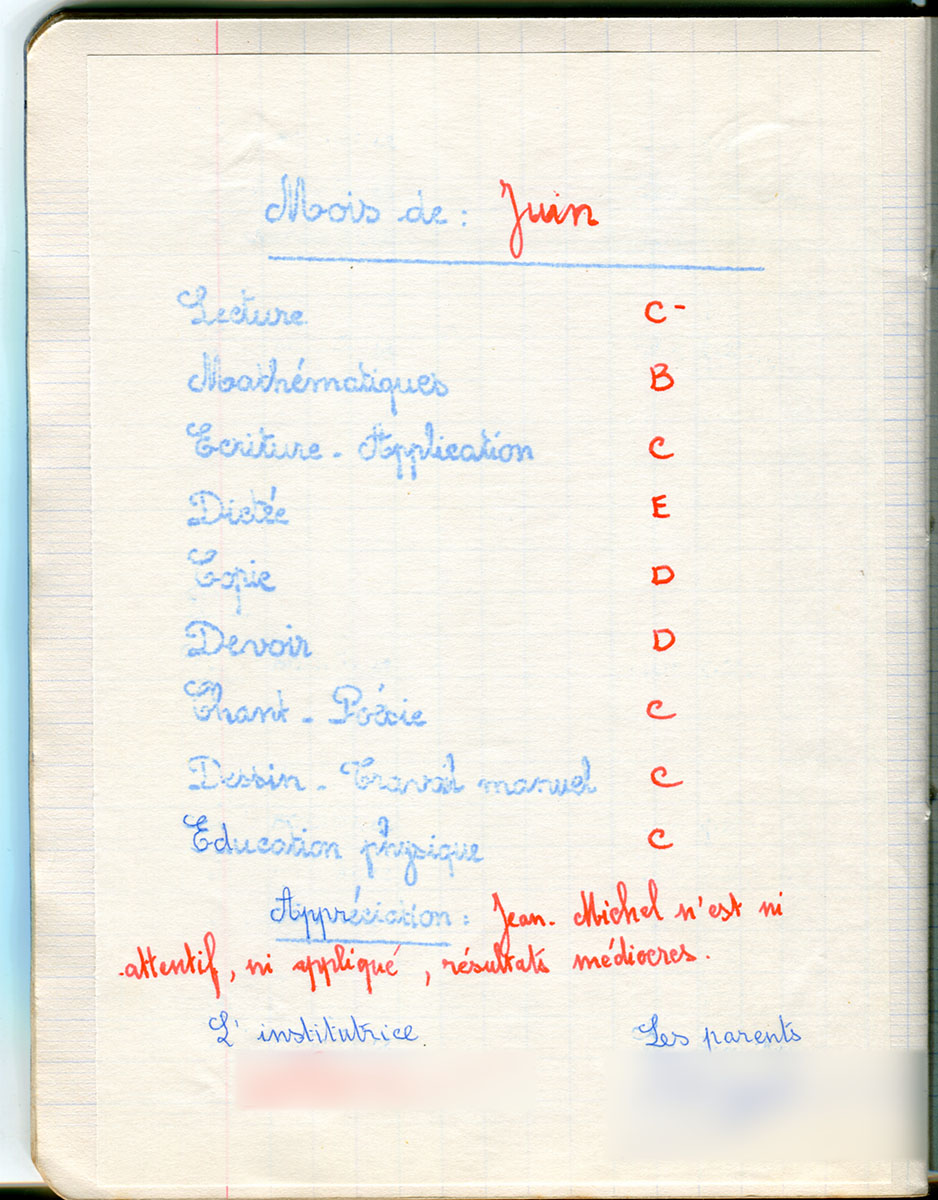 Mois de : Juin
Lecture C-
Mathématiques B
Ecriture - Application C
Dictée E
Copie D
Devoir D
Chant - Poésie C
Dessin - Travail manuel C
Education physique C
Appréciation : Jean-Michel n'est ni
attentif, ni appliqué, résultats médiocres.
L'institutrice Les parents